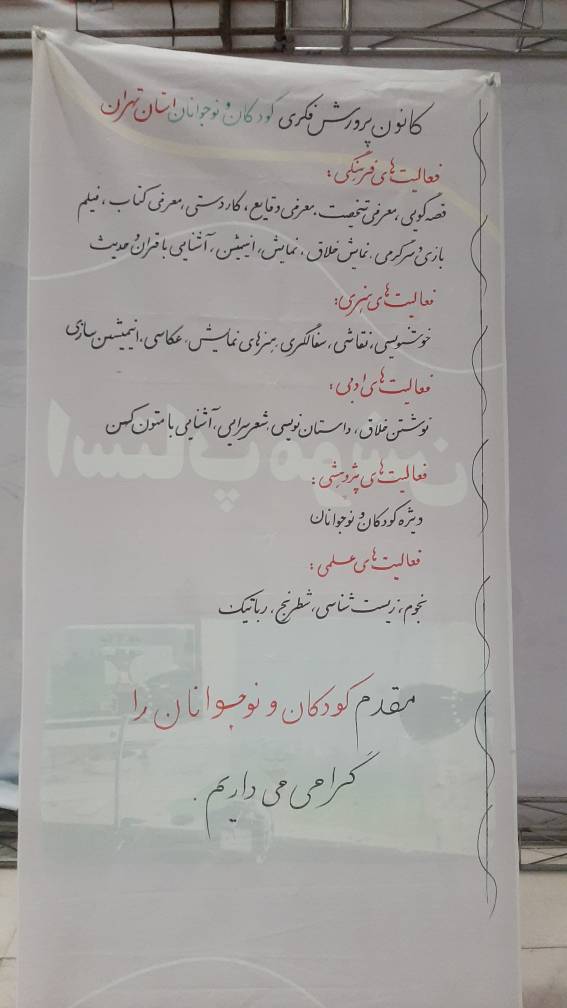 کانون پرورش فکری کودکان و نوجوانان استان تهران
فعالیت‌های فرهنگی :
قصه گویی ، معرفی شخصیت ، معرفی وقایع ، کاردستی ، معرفی کتاب ، فیلم
بازی و سرگرمی ، نمایش خلاق ، نمایش ، انیمیشن ، آشنایی با قرآن و حدیث
فعالیت‌های هنری :
خوشنویسی ، نقاشی ، سفالگری ، هنرهای نمایش ، عکاسی ، انیمیشن سازی
فعالیت‌های ادبی :
نوشتن خلاق ، داستان نویسی ، شعرسرایی ، آشنایی با متون کهن
فعالیت‌های پژوهشی :
ویژه کودکان و نوجوانان
فعالیت‌های علمی :
نجوم ، زیست شناسی ، شطرنج ، رباتیک
مقدم کودکان و نوجوانان را
گرامی می داریم .